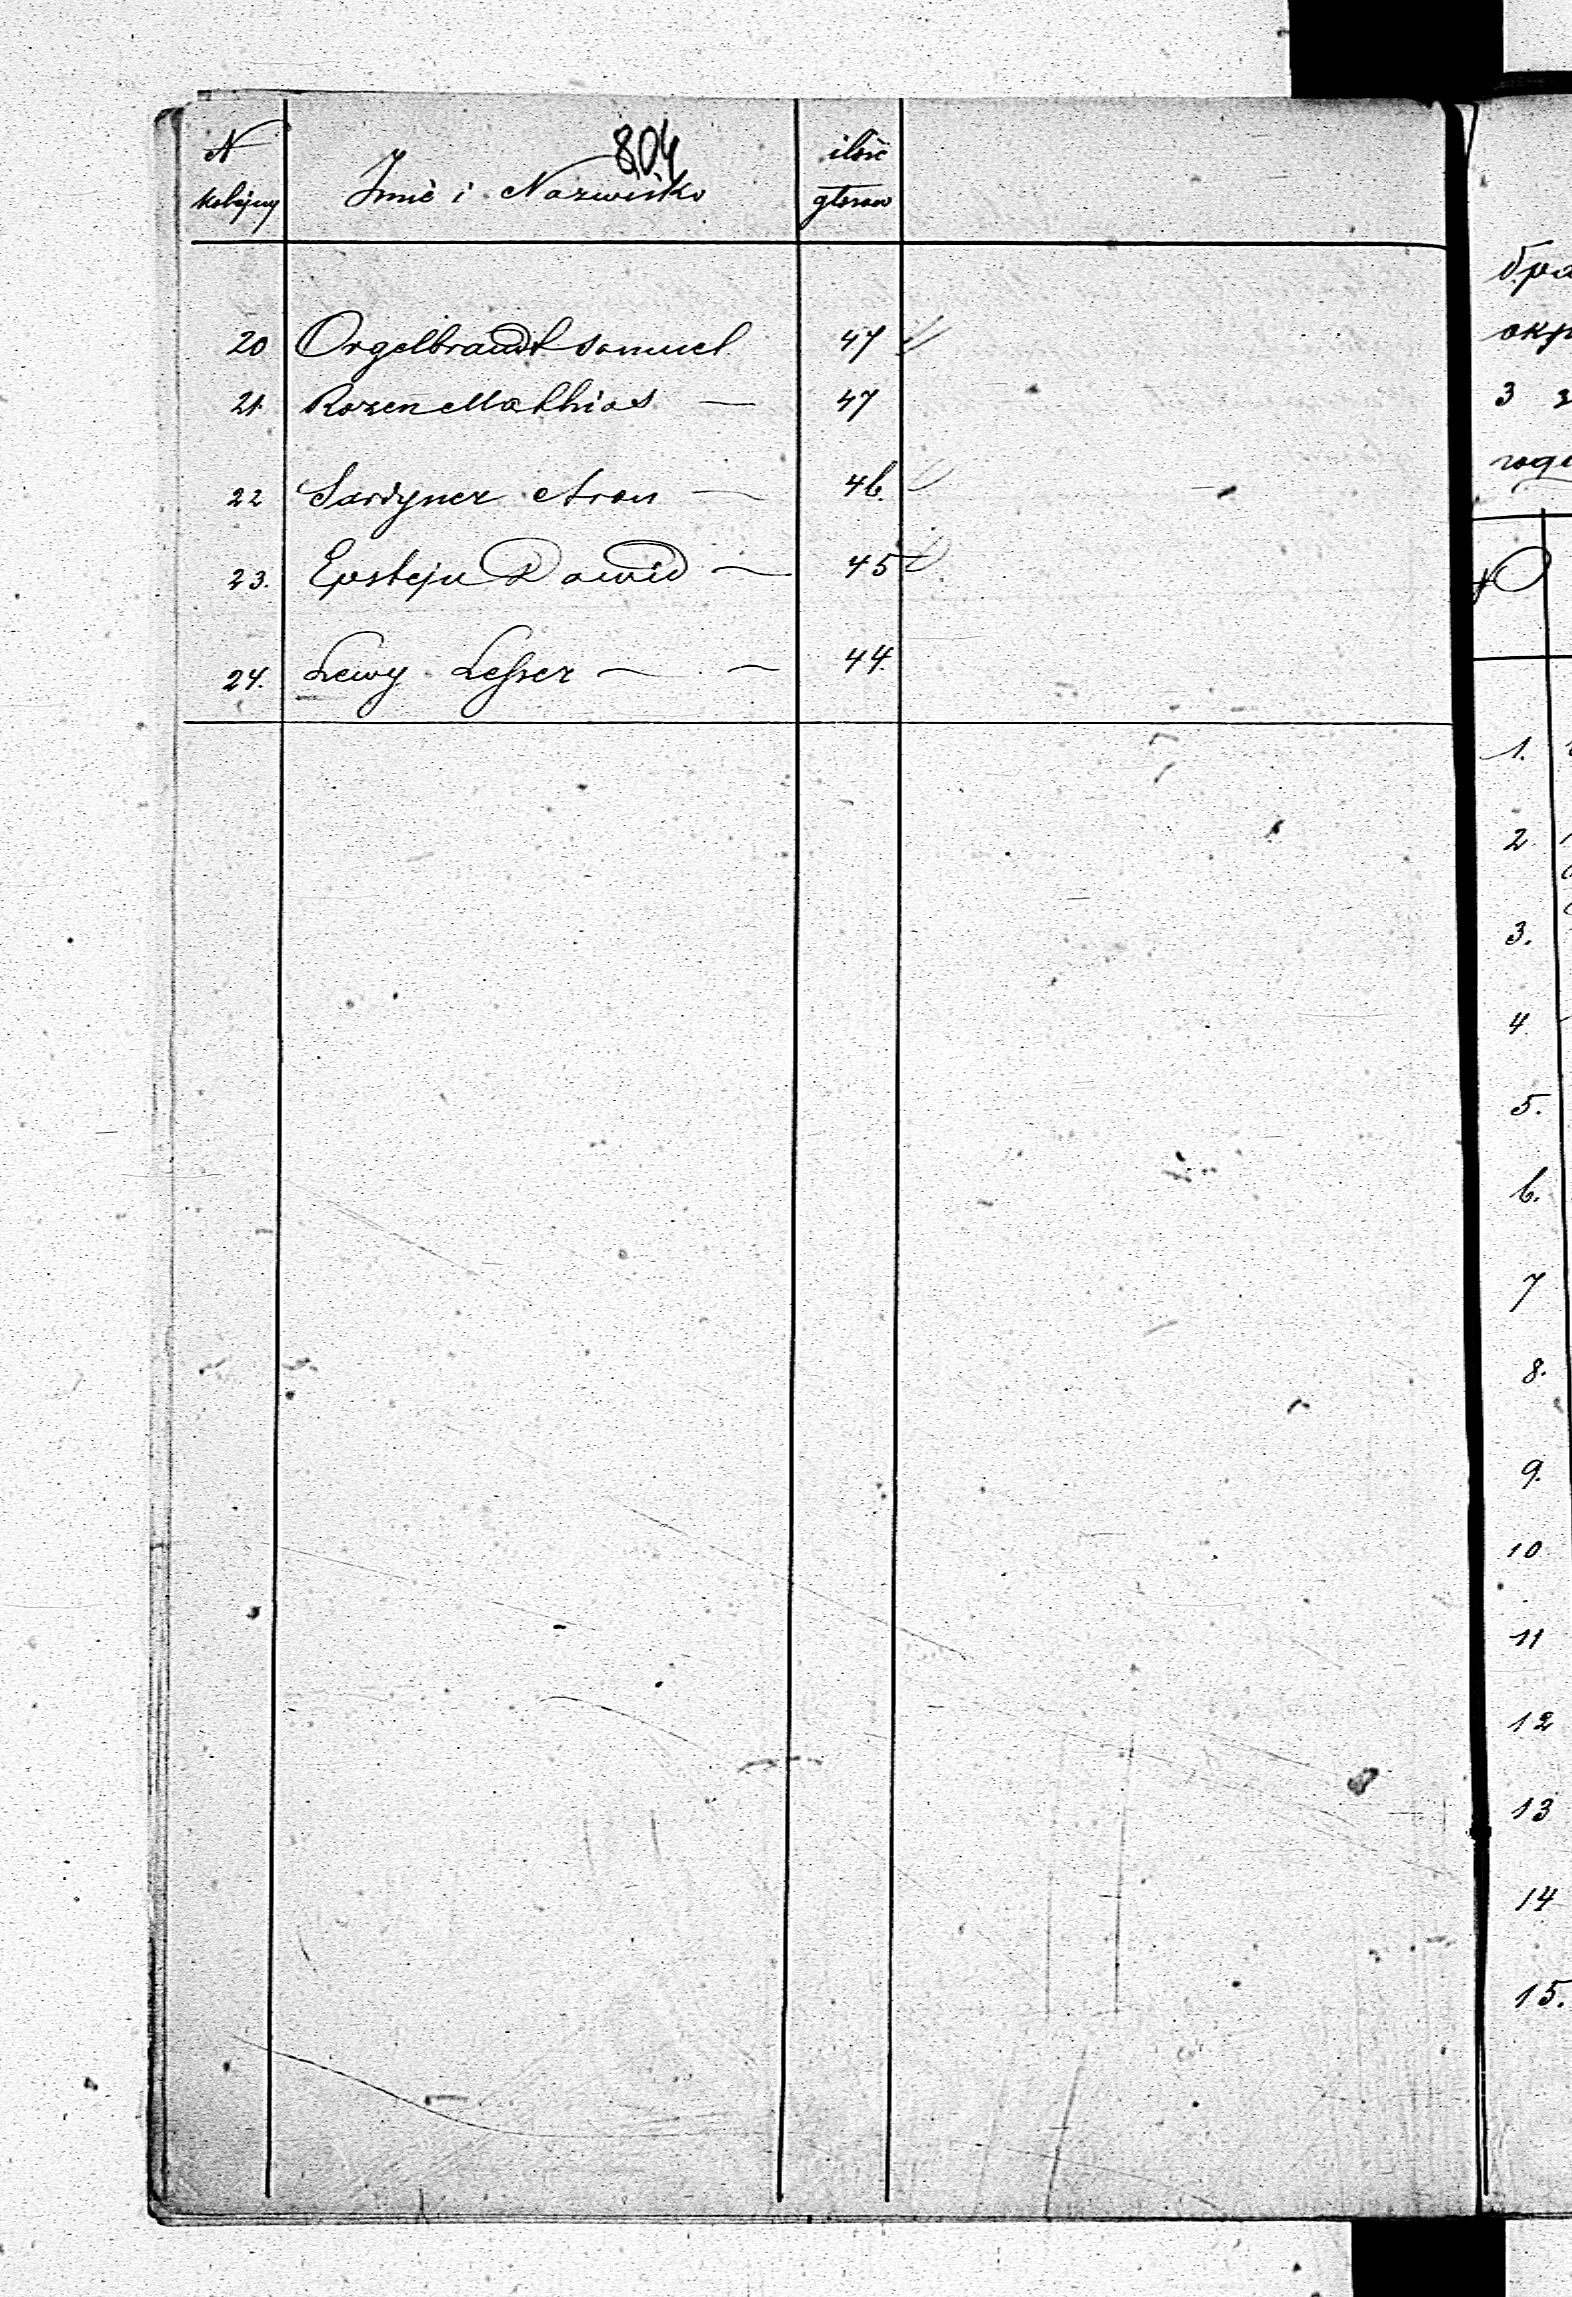 804
N kolejny Imie i Nazwisko ilosc głosow
20 Orgelbrandt Samuel 47
21. Rozen Mathias — 47
22 Sardyner Aron — 46.
23. Epstejn Dawid — 45
24. Lewy Lesser — — 44.
бра
окр
3
годи
№
1.
2
3.
4
5.
6.
7
8.
9.
10
11
12
13
14
15.